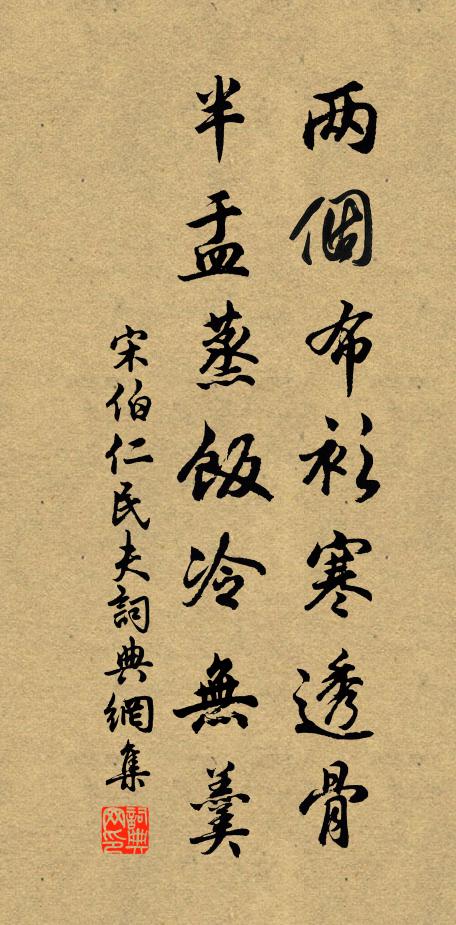 两個布衫寒透骨
半盂蒸飯冷無羹
宋伯仁民夫詞典網集
詞典網印